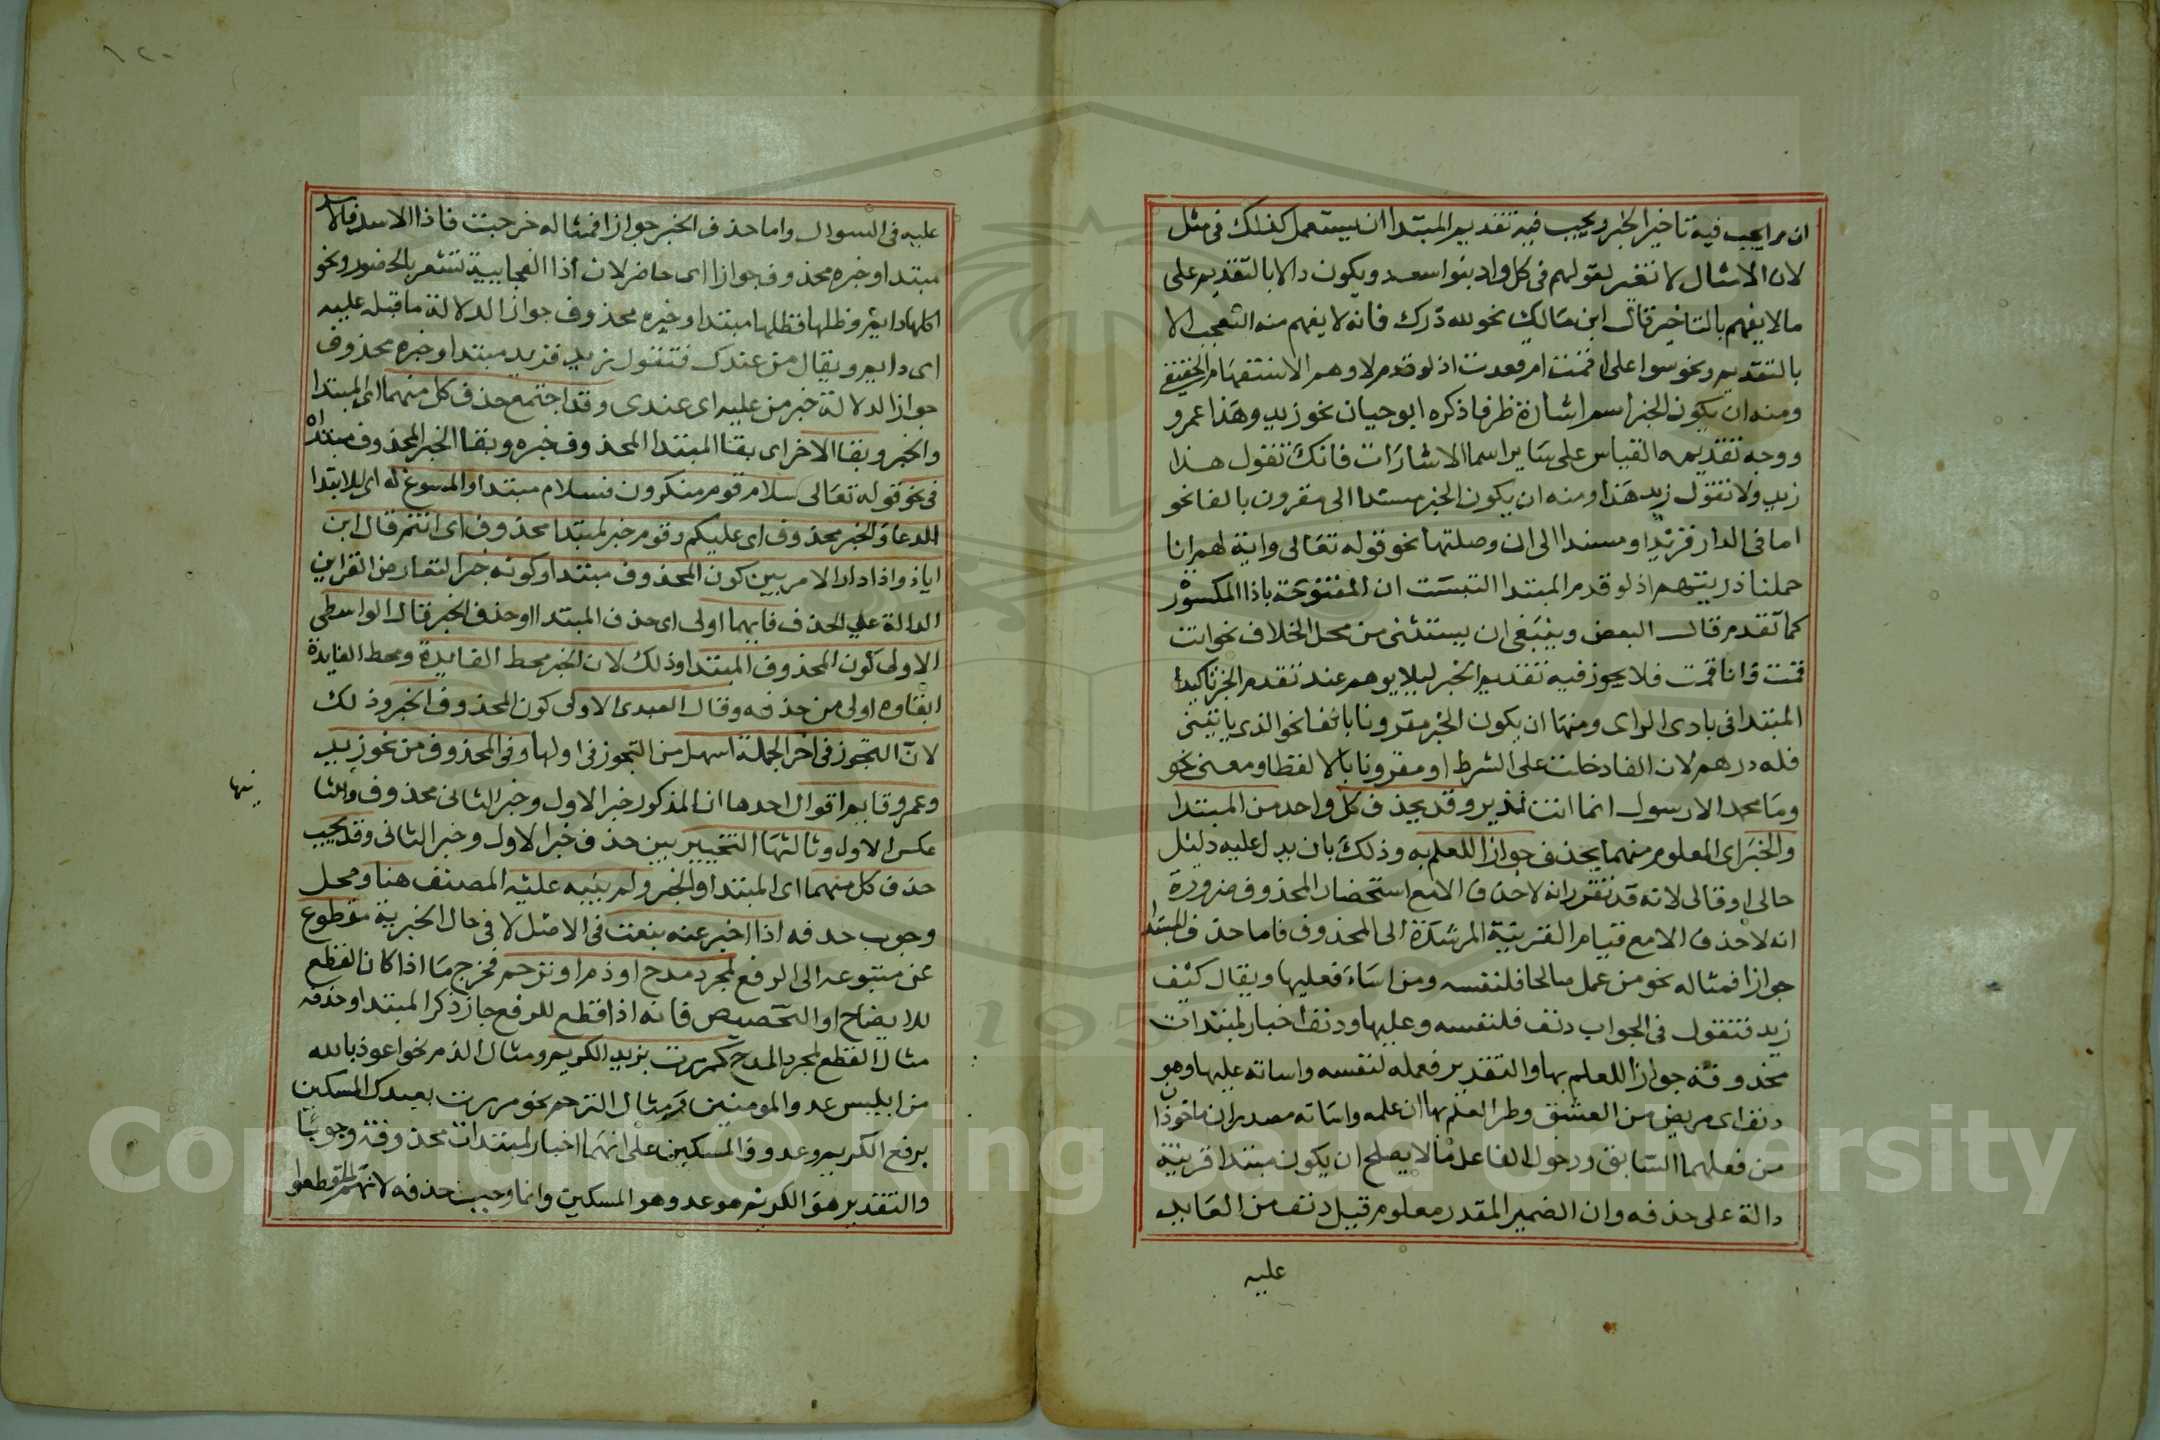 ان مما يجب فيه تاخير الخبر ويجب فيه تقديم المبتدا ان يستعمل كذلك في مثل
لان الامثال لا تغير لقولهم في كل واد بنوا سعد ويكون دالا بالتقديم على
مالا يفهم بالتاخير قال ابن مالك نحو لله درك فانه لا يفهم منه التعجب الا
بالتقديم ونحو سوا علي اقمت ام قعدت اذ لو قدم لاوهم الاستفهام الحقيقي
ومنه ان يكون الخبر اسم اشارة ظرفا ذكره ابو حيان نحو زيد وهذا عمرو
ووجه تقديمه القياس على ساير اسما الاشارات فانك تقول هذا
زيد ولا تقول زيد هذا ومنه ان يكون الخبر مسندا الى مقرون بالفا نحو
اما في الدار فزيد او مسندا الى ان وصلتها نحو قوله تعالى واية لهم انا
حملنا ذريتهم اذ لو قدم المبتدا التبست ان المفتوحة باذا المكسور
كما تقدم قال البعض وينبغي ان يستثنى من محل الخلاف نحو انت
قمت وانا قمت فلا يجوز فيه تقديم الخبر ليلا يوهم عند تقدم الخبر تاكيدا
المبتدا في بادى الراى ومنها ان يكون الخبر مقرونا بالفا نحو الذي ياتيني
فله درهم لان الفا دخلت على الشرط او مقرونا بالا لفظا ومعنى نحو
وما محمد الا رسول انما انت نذير وقد يحذف كل واحد من المبتدا
والخبر اى المعلوم منهما يحذف جوازا للعلم به وذلك بان يدل عليه دليل
حالى او قالى لانه قد تقرر انه لا حذف الا مع استحضار المحذوف ضرورة
انه لا حذف الا مع قيام القرينة المرشدة الى المحذوف فاما حذف المبتدا
جوازا فمثاله نحو من عمل صالحا فلنفسه ومن اساء فعليها ويقال كيف
زيد فتقول في الجواب دنف فلنفسه وعليها ودنف اخبار لمبتدات
محذوفة جوازا للعلم بها والتقدير فعمله لنفسه واساته عليها وهو
دنف اى مريض من العشق وطر العلم بها ان علمه واساته مصدران ماخوذا
من فعلهما السابق ودخول الفا على مالا يصلح ان يكون مبتدا قرينة
دالة على حذفه وان الضمير المقدر معلوم قبل دنف من العايد
عليه
١٢٠
عليه في السوال واما حذف الخبر جوازا فمثاله خرجت فاذا الاسد فالاسد
مبتدا وخبره محذوف جوازا اى حاضر لان اذا الفجايية تشعر بالحضور ونحو
اكلها دايم وظلها فظلها مبتدا وخبره محذوف جوازا لدلالة ما قبله عليه
اى دايم ويقال من عندك فتقول زيد فزيد مبتدا وخبره محذوف
جوازا لدلالة خبر من عليه اى عندى وقد اجتمع حذف كل منهما اى المبتدا
والخبر وبقا الاخر اى بقا المبتدا المحذوف خبره وبقا الخبر المحذوف مبتداه
في نحو قوله تعالى سلام قوم منكرون فسلام مبتدا والمسوغ له اى للابتدا
الدعا والخبر محذوف اى عليكم وقوم خبر لمبتدا محذوف اى انتم قال ابن
اياز واذا دار الامر بين كون المحذوف مبتدا وكونه خبرا لتعارض القراين
الدالة على الحذف فايهما اولى اى حذف المبتدا او حذف الخبر قال الواسطى
الاولى كون المحذوف المبتدا وذلك لان الخبر محط الفايدة ومحط الفايدة
ابقاوه اولى من حذفه وقال العبدى الاولى كون المحذوف الخبر وذلك
لان التجوز في اخر الجملة اسهل من التجوز في اولها وفي المحذوف من نحو زيد
وعمرو قايم اقوال احدها ان المذكور خبر الاول وخبر الثانى محذوف وثانيها
عكس الاول وثالثها التخيير بين حذف خبر الاول وخبر الثانى وقد يجب
حذف كل منهما اى المبتدا والخبر ولم ينبه عليه المصنف هنا ومحل
وجوب حذفه اذا اخبر عنه بنعت في الاصل لا في حال الخبرية مقطوع
عن متبوعه الى الرفع لمجرد مدح او ذم او ترحم فخرج ما اذا كان القطع
للايضاح او التخصيص فانه اذا قطع للرفع جاز ذكر المبتدا وحذفه
مثال القطع لمجرد المدح كمررت بزيد الكريم ومثال الذم نحو اعوذ بالله
من ابليس عدو المومنين ومثال الترحم نحو مررت بعبدك المسكين
برفع الكريم وعدو والمسكين على انهما اخبار لمبتدات محذوفة وجوبا
والتقدير هو الكريم هو عدو وهو المسكين وانما وجب حذفه لانهم لما قطعوا